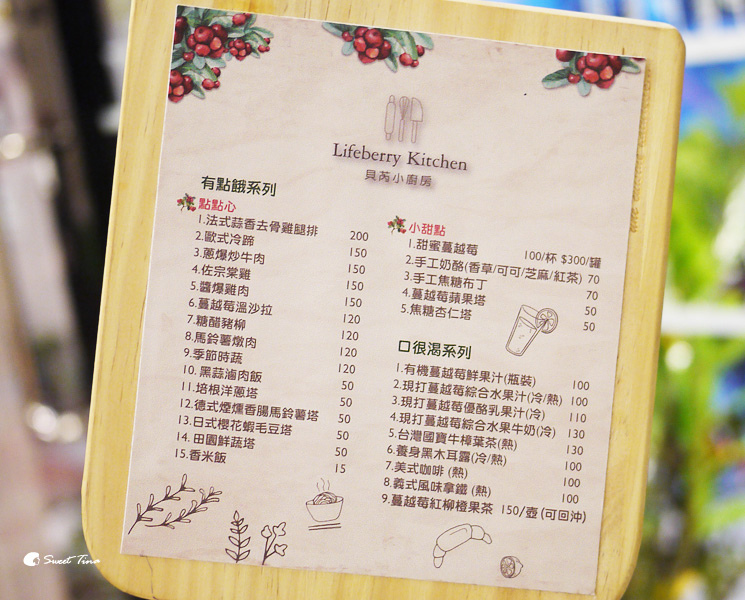 Lifeberry Kitchen
貝芮小廚房
有點餓系列
點點心
1.法式蒜香去骨雞腿排 200
2.歐式冷蹄 150
3.蔥爆炒牛肉 150
4.佐宗棠雞 150
5.醬爆雞肉 150
6.蔓越莓溫沙拉 120
7.糖醋豬柳 120
8.馬鈴薯燉肉 120
9.季節時蔬 120
10.黑蒜滷肉飯 50
11.培根洋蔥塔 50
12.德式煙燻香腸馬鈴薯塔 50
13.日式櫻花蝦毛豆塔 50
14.田園鮮蔬塔 50
15.香米飯 15
小甜點
1.甜蜜蔓越莓 100/杯 $300/罐
2.手工奶酪(香草/可可/芝麻/紅茶) 70
3.手工焦糖布丁 70
4.蔓越莓蘋果塔 50
5.焦糖杏仁塔 50
口很渴系列
1.有機蔓越莓鮮果汁(瓶裝) 100
2.現打蔓越莓綜合水果汁(冷/熱) 100
3.現打蔓越莓優酪乳果汁(冷) 110
4.現打蔓越莓綜合水果牛奶(冷) 130
5.台灣國寶牛樟葉茶(熱) 130
6.養身黑木耳露(冷/熱) 100
7.美式咖啡(熱) 100
8.義式風味拿鐵(熱) 100
9.蔓越莓紅柳橙果茶 150/壺(可回沖)
Sweet Tina